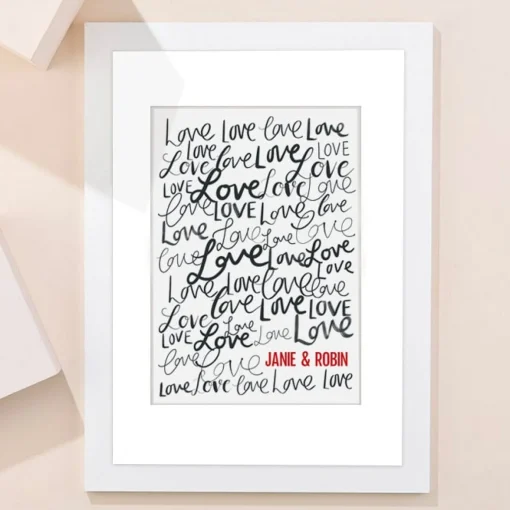 Love Love Love Love
Love Love Love
Love Love Love Love
LOVE Love Love Love
Love LOVE Love Love
Love Love Love Love
Love Love Love Love
Love Love Love
Love Love Love
Love Love LOVE
Love Love Love Love
LOVE Love
Love Love JANIE & ROBIN
Love Love Love Love Love